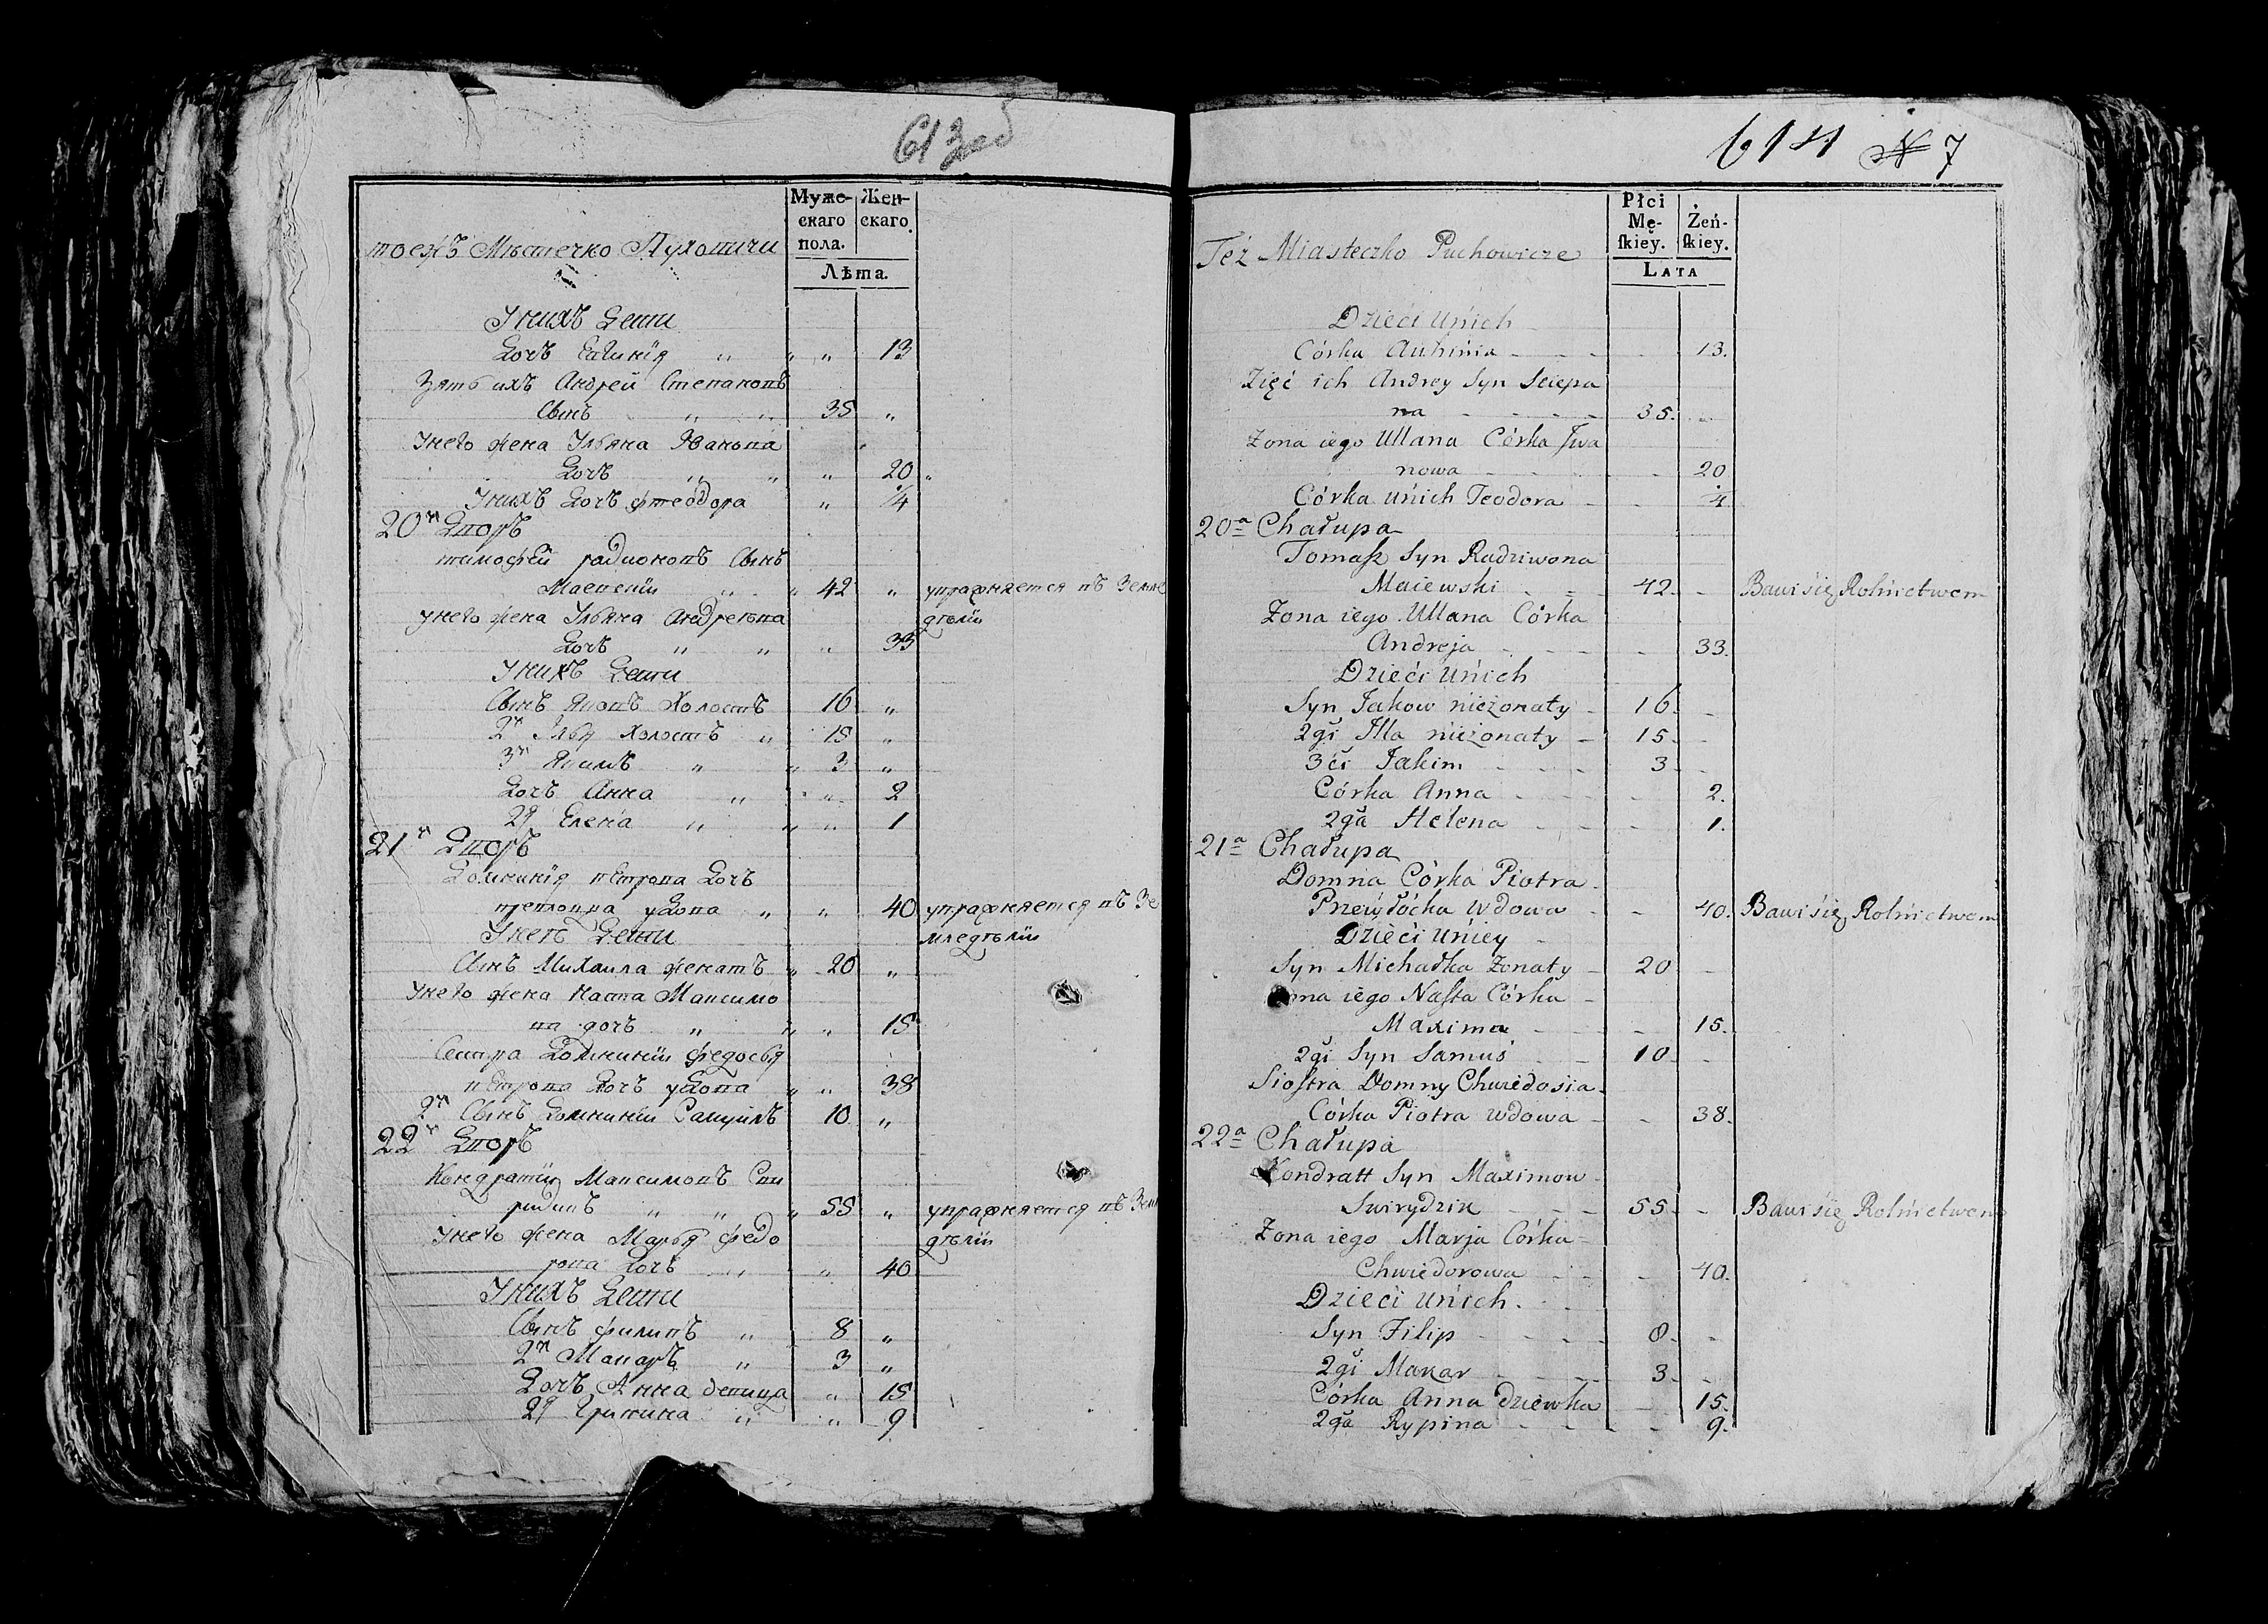 613 об
Муже-
скаго
пола.
Жен-
скаго.
Лѣта.
тоежъ Мѣстечко Пуховичи
У нихъ Дети
Дочъ Евгинія " " " 13
Зять ихъ Андрей Степановъ
Сынъ " " 35 "
У него жена Ульяна Иванова
Дочъ " " " 20 "
У нихъ Дочъ Фтеодора " 4
20й Дворъ
тимофей родионовъ Сынъ
Маевскій " " 42 " упражняется въ Земле
дѣліи
у него жена Ульяна Андреева
Дочъ " " " 33
У нихъ Дети
Сынъ Яковъ Холостъ 16 "
2й Илья Холостъ " 15 "
3й Якимъ " " 3 "
Дочъ Анна " " " 2
2я Елена " " " 1
21й Дворъ
Домникія петрова Дочъ
вдова " " 40 упражняется въ Зе
мледѣліи
У неѣ Дети
Сынъ Михаила женатъ " 20 "
У него жена Наста Максимо
ва дочъ " " " 15
Сестра Домникіи Федосья
петрова Дочъ вдова " " 38
2й Сынъ Домникіи Самуилъ 10 "
22й Дворъ
Кондратій Максимовъ Сви
ридикъ " " " 55 " упражняется въ Зем
дѣліи
У него жена Марья Федо
рова Дочъ " " 40
У нихъ Дети
Сынъ Филипъ " 8 "
2й Макаръ " 3 "
Дочъ Анна девица " 15
2я Грипина " " 9
614 N 7
Płci
Mę-
skiey.
Żeń-
skiey.
LATA
Też Miasteczko Puchowicze
Dzieci u nich
Córka Auhinia - - - - 13.
Zięć ich Andrey Syn Sciepa
na - - - - 35. -
Zona iego Ullana Córka Iwa
nowa - - - - 20
Córka u nich Teodora - - 4
20a Chałupa
Tomasz Syn Radziwona
Maiewski - - - 42. - Bawi się Rolnictwem
Zona iego Ullana Córka
Andreja - - - - 33.
Dzieci u nich
Syn Jakow nieżonaty - 16. -
2gi Illa nieżonaty - 15. -
3ci Jakim - - - 3. -
Córka Anna - - - - 2.
2ga Helena - - - 1.
21a Chałupa
Domna Córka Piotra -
wdowa - - 40. Bawi się Rolnictwem
Dzieci u niey -
Syn Michałka Zonaty - 20 -
Zona iego Nasta Córka -
Maxima - - - - 15.
2gi Syn Samuś - - 10. -
Siostra Domny Chwiedosia -
Córka Piotra wdowa - - 38.
22a Chałupa
Kondratt Syn Maximow -
Swirydzik - - - 55. - Bawi się Rolnictwem
Zona iego Marja Córka -
Chwiedorowa - - - 40.
Dzieci u nich. - -
Syn Filip - - - - 8. -
2gi Makar - - - - 3. -
Córka Anna dziewka - 15.
2ga Rypina - - - - 9.